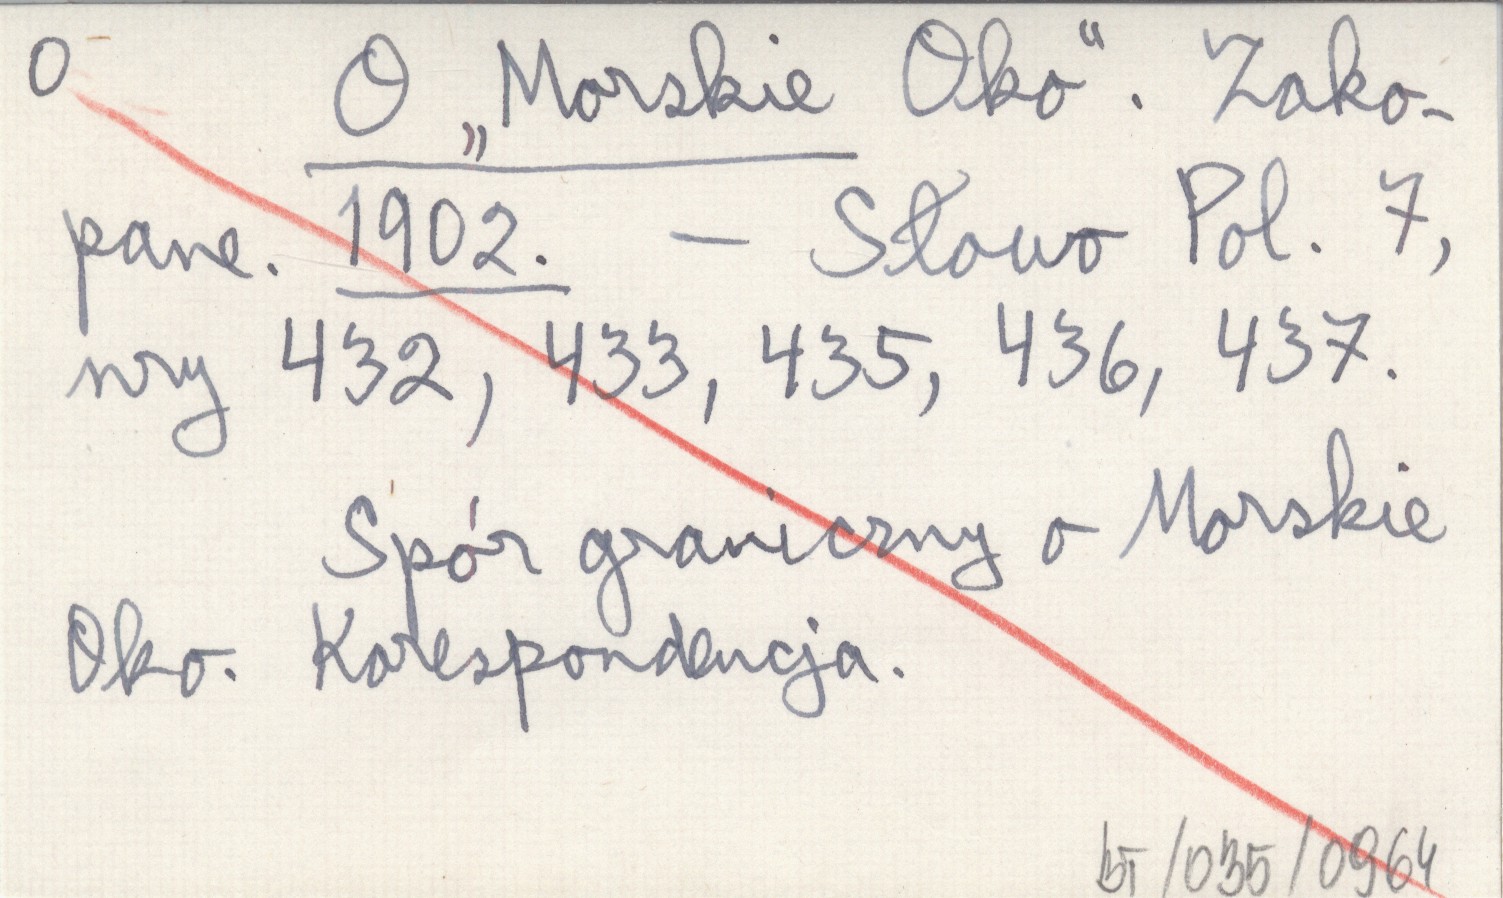 O
O „Morskie Oko“. Zako-
pane. 1902. — Słowo Pol. 7,
nry 432, 433, 435, 436, 437.
Spór graniczny o Morskie
Oko. Korespondencja.
BT/035/0964